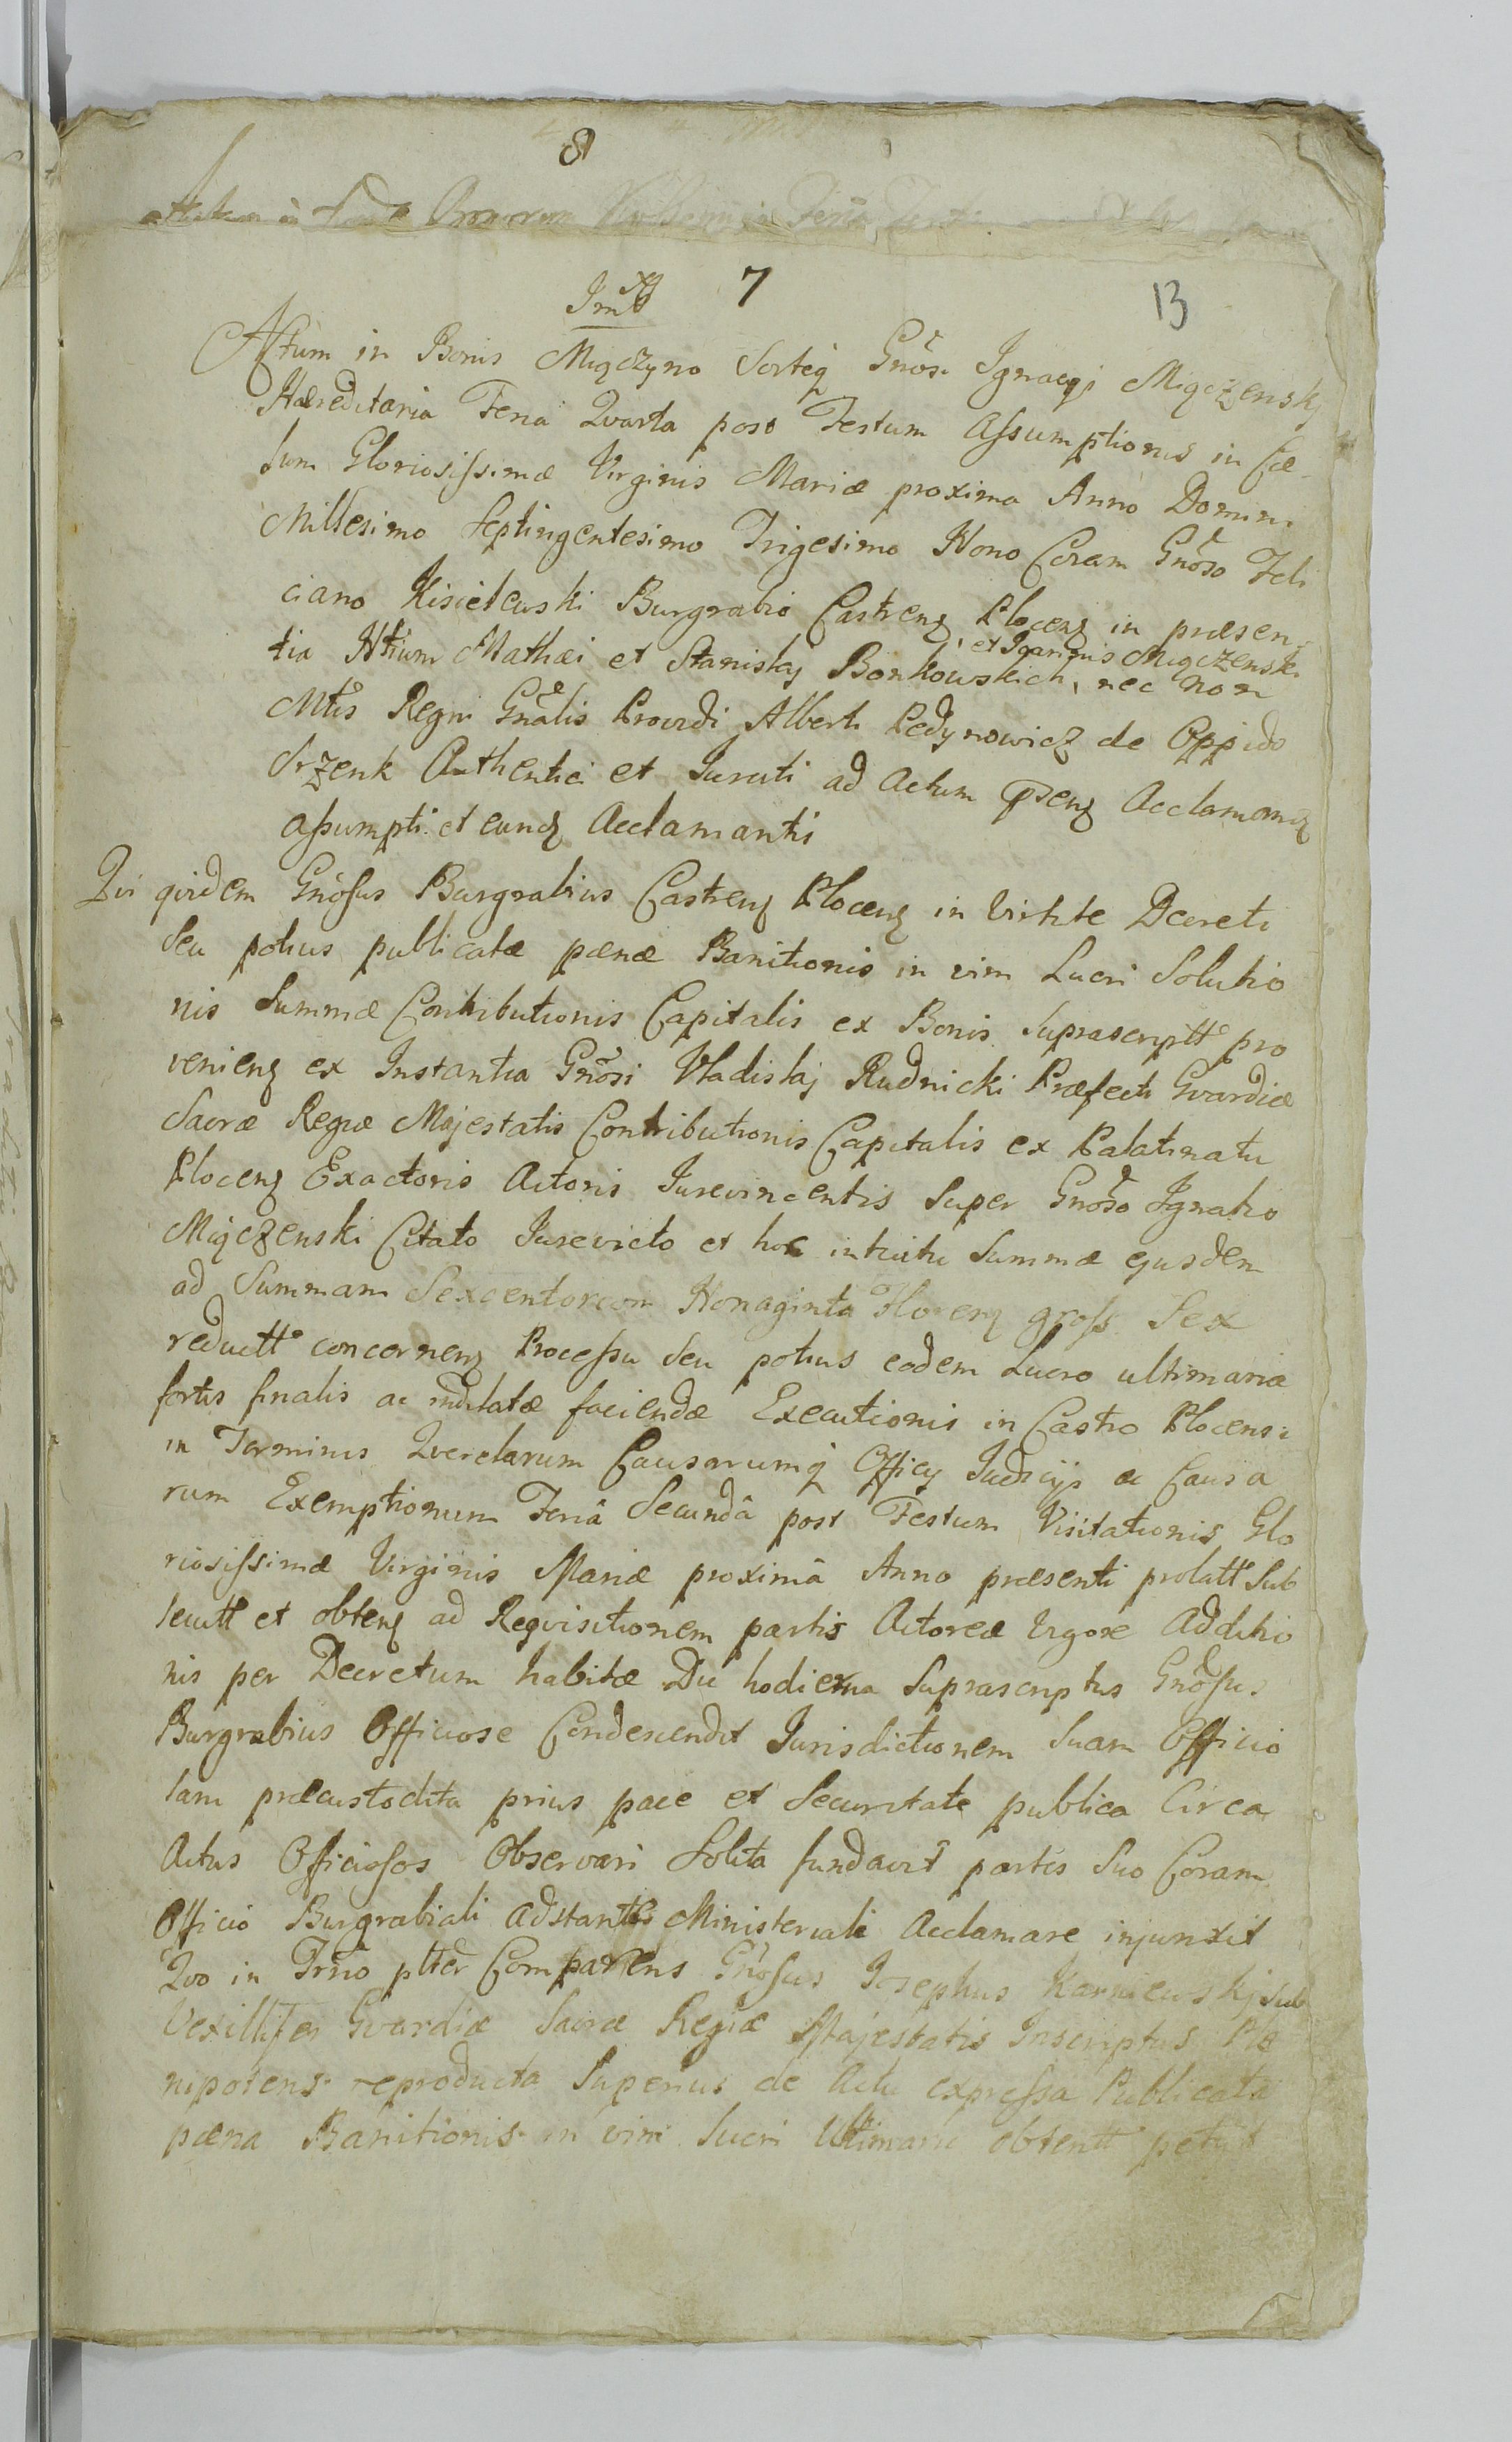 8
7
13
Actum in Bonis Miączyno Sorteq Gnosi Ignacyi Miączenskj
Hæreditaria Feria Qvarta post Festum Assumptionis in Cæ
lum Gloriosissimæ Virginis Mariæ proxima Anno Domini
Millesimo Septingentesimo Trigesimo Nono Coram Gnoso Feli
ciano Kisielewski Burgrabio Castrenq Plocenq in præsen
tia Ntium Mathæi et Stanislaj Bonkowskich, nec non
et Miączenski
Mtis Regni Gnalis Providi Alberti Pedynowicz de Oppido
Srzenk Authentici et Jurati ad Actum pnsenq Acclamanq
assumpti et eunq Acclamantis
Qvi qvidem Gnosus Burgrabius Castrenq Plocenq in Virtute Decreti
Seu potius publicatæ pœnæ Banitionis in vim Lucri Solutio
nis Summæ Contributionis Capitalis ex Bonis Suprascriptt pro
venienq ex Instantia Gnosi Vladislaj Rudnicki Præfecti Gvardiæ
Sacræ Regiæ Majestatis Contributionis Capitalis ex Palatinatu
Plocenq Exactoris Actoris Jurevincentis Super Gnoso Ignatio
Miączenski Citato Jurevicto et hoc intuitu Summæ ejusdem
ad Summam Sexcentorum Nonaginta Florenq gross Sex
reductt concernenq Processu Seu potius eodem Lucro ultimariæ
fortis finalis ac faciendæ Executionis in Castro Plocensi
in Terminis Qverelarum Causarumq Officij Judicijs ac Causa
rum Exemptionum Feria Secundâ post Festum Visitationis Glo
riosissimæ Virginis Mariæ proximâ Anno præsenti prolatt Sub
secutt et obtenq ad Reqvisitionem partis Actoreæ Vigore Additio
nis per Decretum habitæ Die hodierna Suprascriptus Gnosus
Burgrabius Officiose Condescendit Jurisdictionem Suam Officio
sam præcustodita prius pace et Securitate publica Circa
Actus Officiosos Observari Solita fundavit partes Suo Coram
Officio Burgrabiali adstantes Ministeriali Acclamare injunxit
Qvo in Trno plter Comparens Gnosus Josephus Karniewskj Sub
Vexillifer Gvardiæ Sacræ Regiæ Majestatis Inscriptus Ple
nipotens reproducta Superius de Actu expressa Publicata
pæna Banitionis in vim lucri Ultimarii obtentt petiit